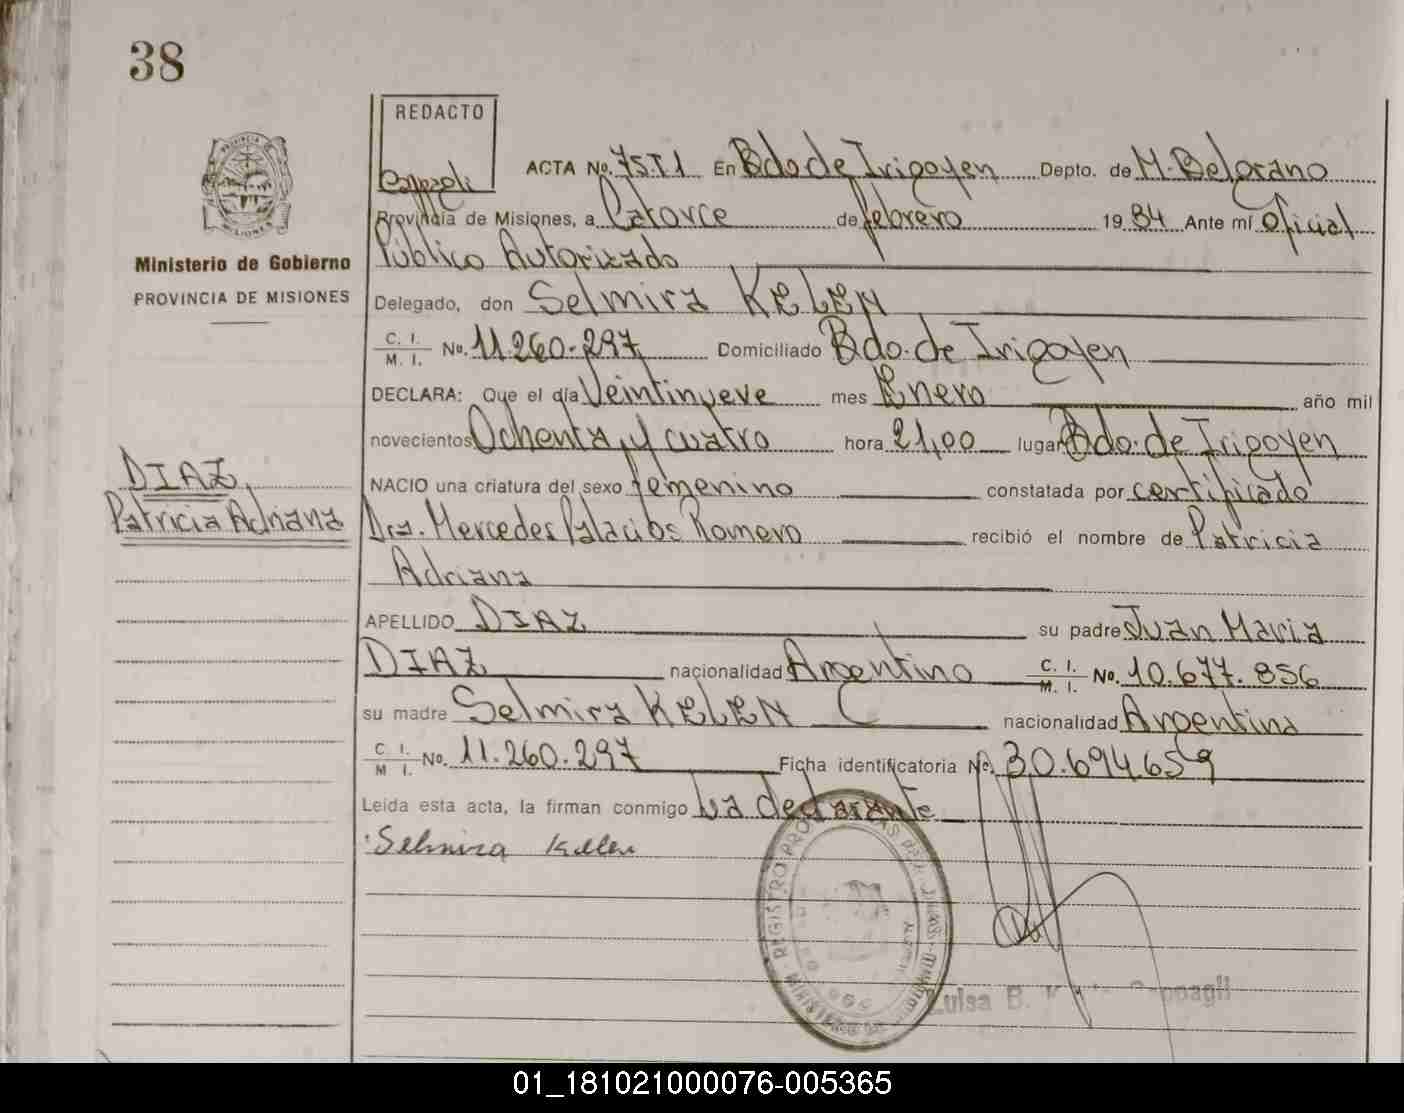 38
REDACTO
ACTA No. 75.T.1 En Bdo de Irigoyen Depto. de M. Belgrano
Provincia de Misiones, a Catorce de febrero 1984 Ante mí Oficial
Público Autorizado
Ministerio de Gobierno
PROVINCIA DE MISIONES
Delegado, don Selmira KELEN
C. I. M. I. No. 11.260.297 Domiciliado Bdo. de Irigoyen
DECLARA: Que el día Veintinueve mes Enero año mil
novecientos Ochenta y cuatro hora 21,00 lugar Bdo. de Irigoyen
DIAZ,
Patricia Adriana
NACIO una criatura del sexo femenino constatada por certificado
Dra. Mercedes Palacios Romero recibió el nombre de Patricia
Adriana
APELLIDO DIAZ su padre Juan Maria
DIAZ nacionalidad Argentino C. I. M. I. No. 10.677.856
su madre Selmira KELEN nacionalidad Argentina
C. I. M I. No. 11.260.297 Ficha identificatoria No. 30.694659
Leída esta acta, la firman conmigo La declarante
Selmira Kelen
REGISTRO
Luisa B.
01_181021000076-005365